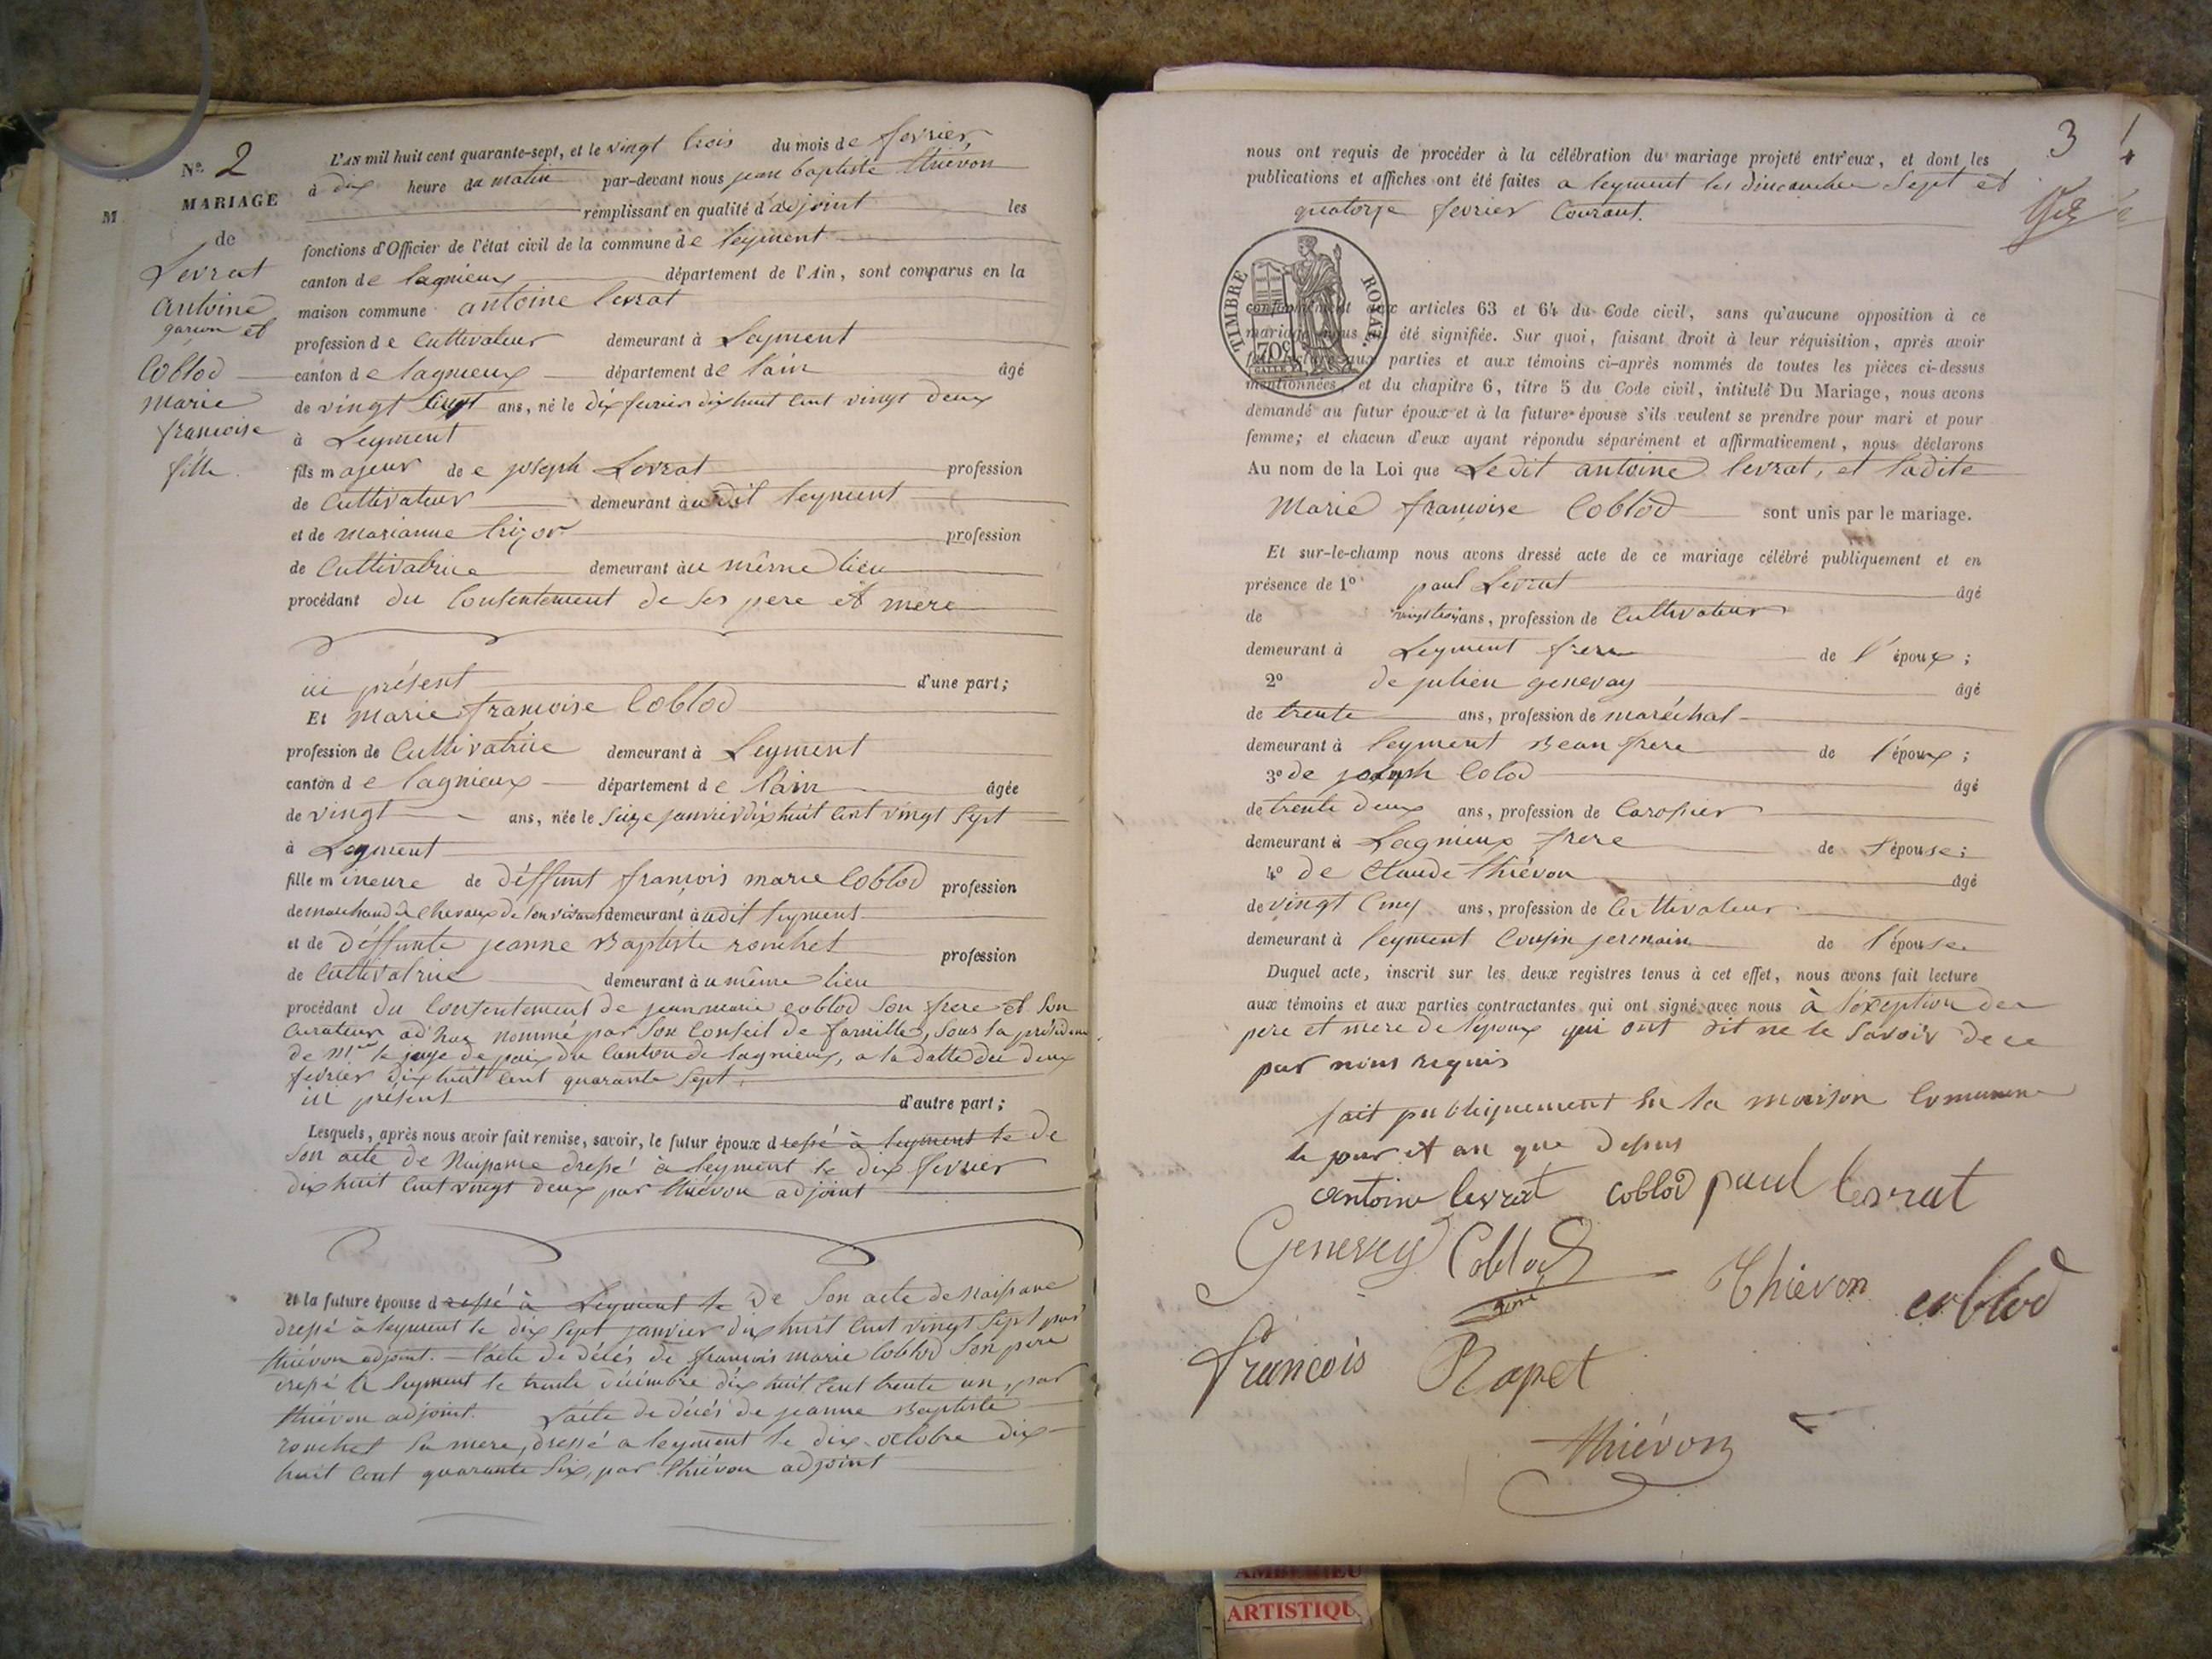 Nº 2
MARIAGE
de
Levrat
antoine
garcon et
Coblod
marie
francoise
fille.
L'AN mil huit cent quarante-sept, et le vingt trois du mois de fevrier
à dix heure du matin par-devant nous jean baptiste thiévon
remplissant en qualité d'adjoint les
fonctions d'Officier de l'état civil de la commune de leyment
canton de lagnieux département de l'Ain, sont comparus en la
maison commune antoine levrat
profession de Cultivateur demeurant à Leyment
canton de lagnieux département de l'ain âgé
de vingt ans, né le dix fevrier dix huit cent vingt deux
à Leyment
fils majeur de joseph Levrat profession
de Cultivateur demeurant audit leyment
et de marianne profession
de Cultivatrice demeurant au même lieu
procédant du Consentement de ses pere et mere
ici présent d'une part;
Et marie francoise Coblod
profession de Cultivatrice demeurant à Leyment
canton de lagnieux département de l'ain âgée
de vingt ans, née le Seize janvier dix huit cent vingt Sept
à Leyment
fille mineure de déffunt françois marie Coblod profession
de marchand de Chevaux de son vivant demeurant audit leyment
et de déffunte jeanne Baptiste rouchet profession
de Cultivatrice demeurant au même lieu
procédant du Consentement de jeanmarie coblod Son frere et Son
Curateur ad'hoc nommé par Son Conseil de famille, sous la présidence
de Mr le juge de paix du Canton de lagnieux, a la datte du deux
fevrier dix huit cent quarante Sept.
ici présent d'autre part;
Lesquels, après nous avoir fait remise, savoir, le futur époux dressé à leyment le de
Son acte de Naissance dressé à leyment le dix fevrier
dix huit cent vingt deux par thiévon adjoint
et la future épouse dressé à Leyment le de Son acte de Naissance
dressé à leyment le dix Sept janvier dix huit cent vingt Sept par
thiévon adjoint. l'acte de décés de francois marie Coblod Son pere
dressé à leyment le trente décémbre dix huit cent trente un, par
thiévon adjoint. l'acte de décés de jeanne Baptiste
rouchet sa mere, dressé a leyment le dix octobre dix
huit cent quarante Six, par thiévon adjoint
3
nous ont requis de procéder à la célébration du mariage projeté entr'eux, et dont les
publications et affiches ont été faites a leyment les dimanches Sept et
quatorze fevrier Courant.
TIMBRE ROYAL
70c
conformément aux articles 63 et 64 du Code civil, sans qu'aucune opposition à ce
mariage nous ait été signifiée. Sur quoi, faisant droit à leur réquisition, après avoir
fait lecture aux parties et aux témoins ci-après nommés de toutes les pièces ci-dessus
mentionnées, et du chapitre 6, titre 5 du Code civil, intitulé Du Mariage, nous avons
demandé au futur époux et à la future épouse s'ils veulent se prendre pour mari et pour
femme; et chacun d'eux ayant répondu séparément et affirmativement, nous déclarons
Au nom de la Loi que Ledit antoine levrat, et ladite
Marie francoise Coblod sont unis par le mariage.
Et sur-le-champ nous avons dressé acte de ce mariage célébré publiquement et en
présence de 1º paul Levrat âgé
de vingt trois ans, profession de Cultivateur
demeurant à Leyment frere de l'époux;
2º de julien genevay âgé
de trente ans, profession de maréchal
demeurant à leyment Beau frere de l'époux;
3º de joseph Colod âgé
de trente deux ans, profession de Carossier
demeurant à Lagnieux frere de l'épouse;
4º de Claude thiévon âgé
de vingt Cinq ans, profession de Cultivateur
demeurant à leyment Cousin germain de l'épouse
Duquel acte, inscrit sur les deux registres tenus à cet effet, nous avons fait lecture
aux témoins et aux parties contractantes qui ont signé avec nous à l'exception des
pere et mere de lepoux qui ont dit ne le Savoir de ce
par nous requis
fait publiquement en la maison Commune
le jour et an que desus
antoine levrat coblod paul levrat
Genevey Coblod
Thievon coblod
francois Rapet
thiévon
AMBERIEU
ARTISTIQU